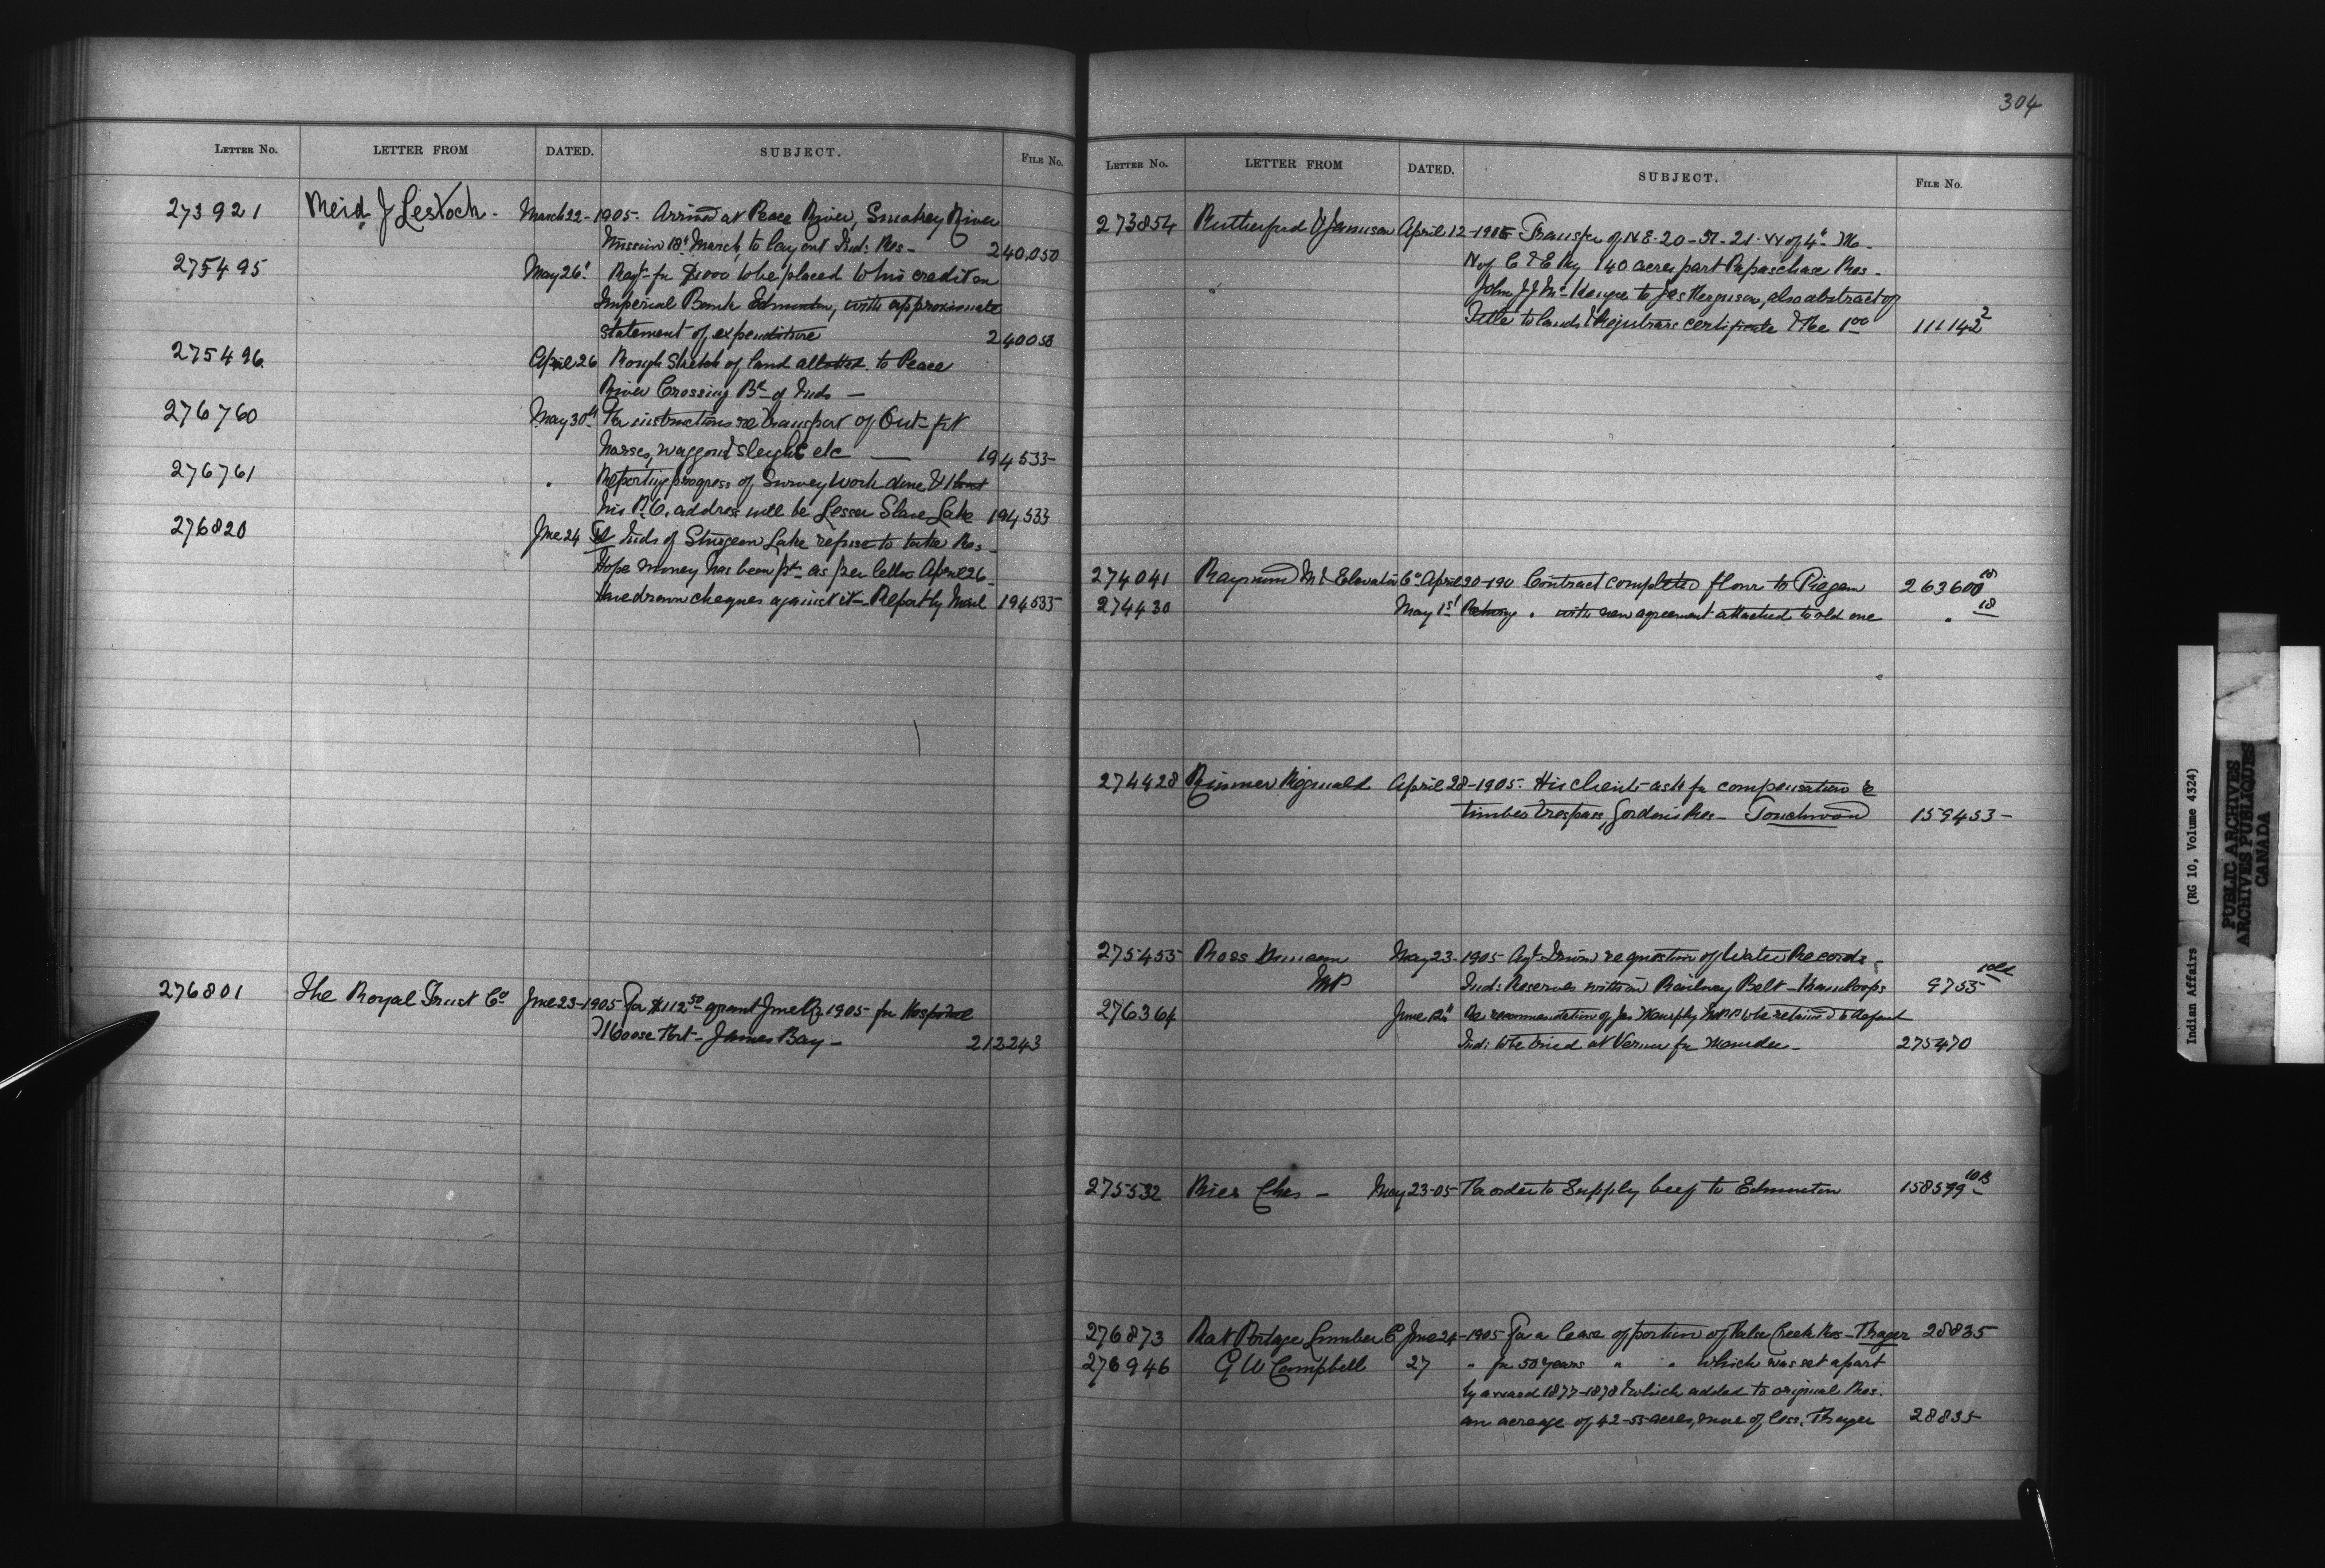 304
LETTER NO. LETTER FROM DATED. SUBJECT. FILE NO.
273921 Reid J Lestock - March 22 - 1905 - Arrived at Peace River, Smokey River
Mission 18t March, to lay out Ind: Res - 240,050
275495 May 26t Reqt for $1000 to be placed to his credit on
Imperial Bank Edmonton, with approximate
statement of expenditure 240050
275496. April 26 Rough sketch of land allotted to Peace
River Crossing Bd of Inds -
276760 May 30th For instructions re transport of Out-fit
horses, waggons & sleighs etc — 194535
276761 " Reporting progress of Survey work done &
his P.O. address will be Lesser Slave Lake 194535
276820 Jne 24 Tel Inds of Sturgeon Lake refuse to take Res -
Hope money has been pd as per letter April 26 -
have drawn cheques against it - Report by Mail 194535
276801 The Royal Trust Co Jne 23 - 1905 For $112 50 grant Jne Qr 1905 - for Hospital
Moose Fort - James Bay - 212243
LETTER NO. LETTER FROM DATED. SUBJECT. FILE NO.
273854 Rutherford & Jamieson April 12 - 1905 Transfer of N.E. 20 - 51 - 21 - W of 4th M -
N of C & E Ry 140 acres part Papaschase Res -
John J to Jas Ferguson, also abstract of
Title to lands & Registrars certificate & Fee 1 00 111142 2
274041 Raymond Ml & Elevator Co April 20 - 190 Contract completed flour to Piegan 263600 18
274430 May 1st Retung " with new agreement attached to old one " 18
274428 Rimmer Reginald April 28 - 1905 - His clients ask for compensation re
timber trespass, Gordon's Res - Touchwood 159453 -
275455 Ross Duncan May 23 - 1905 Agt Irwin re question of Water Records -
MP Inds Reserves within Railway Belt - Kamloops 9755
276364 June 12th Re recommendation of Jas Murphy MPP to be retained to defend
Ind: to be tried at Vernon for Murder - 275470
275532 Ries Chas - May 23 - 05 - For order to supply beef to Edmonton 158599 - 10B
276873 Rat Portage Lumber Co Jne 24 - 1905 For a lease of portion of False Creek Res - Thayer 28835
276946 G W Campbell 27 " for 50 years " " which was set apart
by award 1877 - 1878 & which added to original Res.
an acreage of 42 - 55 acres, more of less. Thayer 28835
Indian Affairs (RG 10, Volume 4324)
PUBLIC ARCHIVES
ARCHIVES PUBLIQUES
CANADA